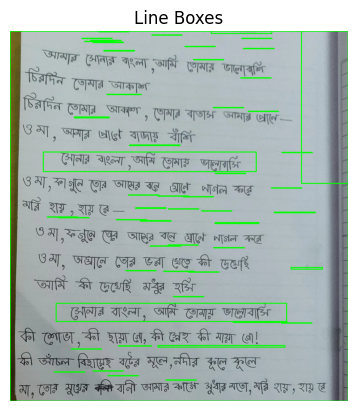 Line Boxes
আমার সোনার বাংলা, আমি তোমায় ভালোবাসি
চিরদিন তোমার আকাশ
চিরদিন তোমার আকাশ, তোমার বাতাস আমার প্রাণে—
ও মা, আমার প্রাণে বাজায় বাঁশি
সোনার বাংলা, আমি তোমায় ভালোবাসি
ও মা, ফাগুনে তোর আমের বনে ঘ্রাণে পাগল করে
মরি হায়, হায় রে—
ও মা, ফাগুনে তোর আমের বনে ঘ্রাণে পাগল করে
ও মা, অঘ্রানে তোর ভরা খেতে কী দেখেছি
আমি কী দেখেছি মধুর হাসি
সোনার বাংলা, আমি তোমায় ভালোবাসি
কী শোভা, কী ছায়া গো, কী স্নেহ কী মায়া গো!
কী আঁচল বিছায়েছ বটের মূলে, নদীর কূলে কূলে
মা, তোর মুখের বানী আমার কানে সুধার মতো, মরি হায়, হায় রে